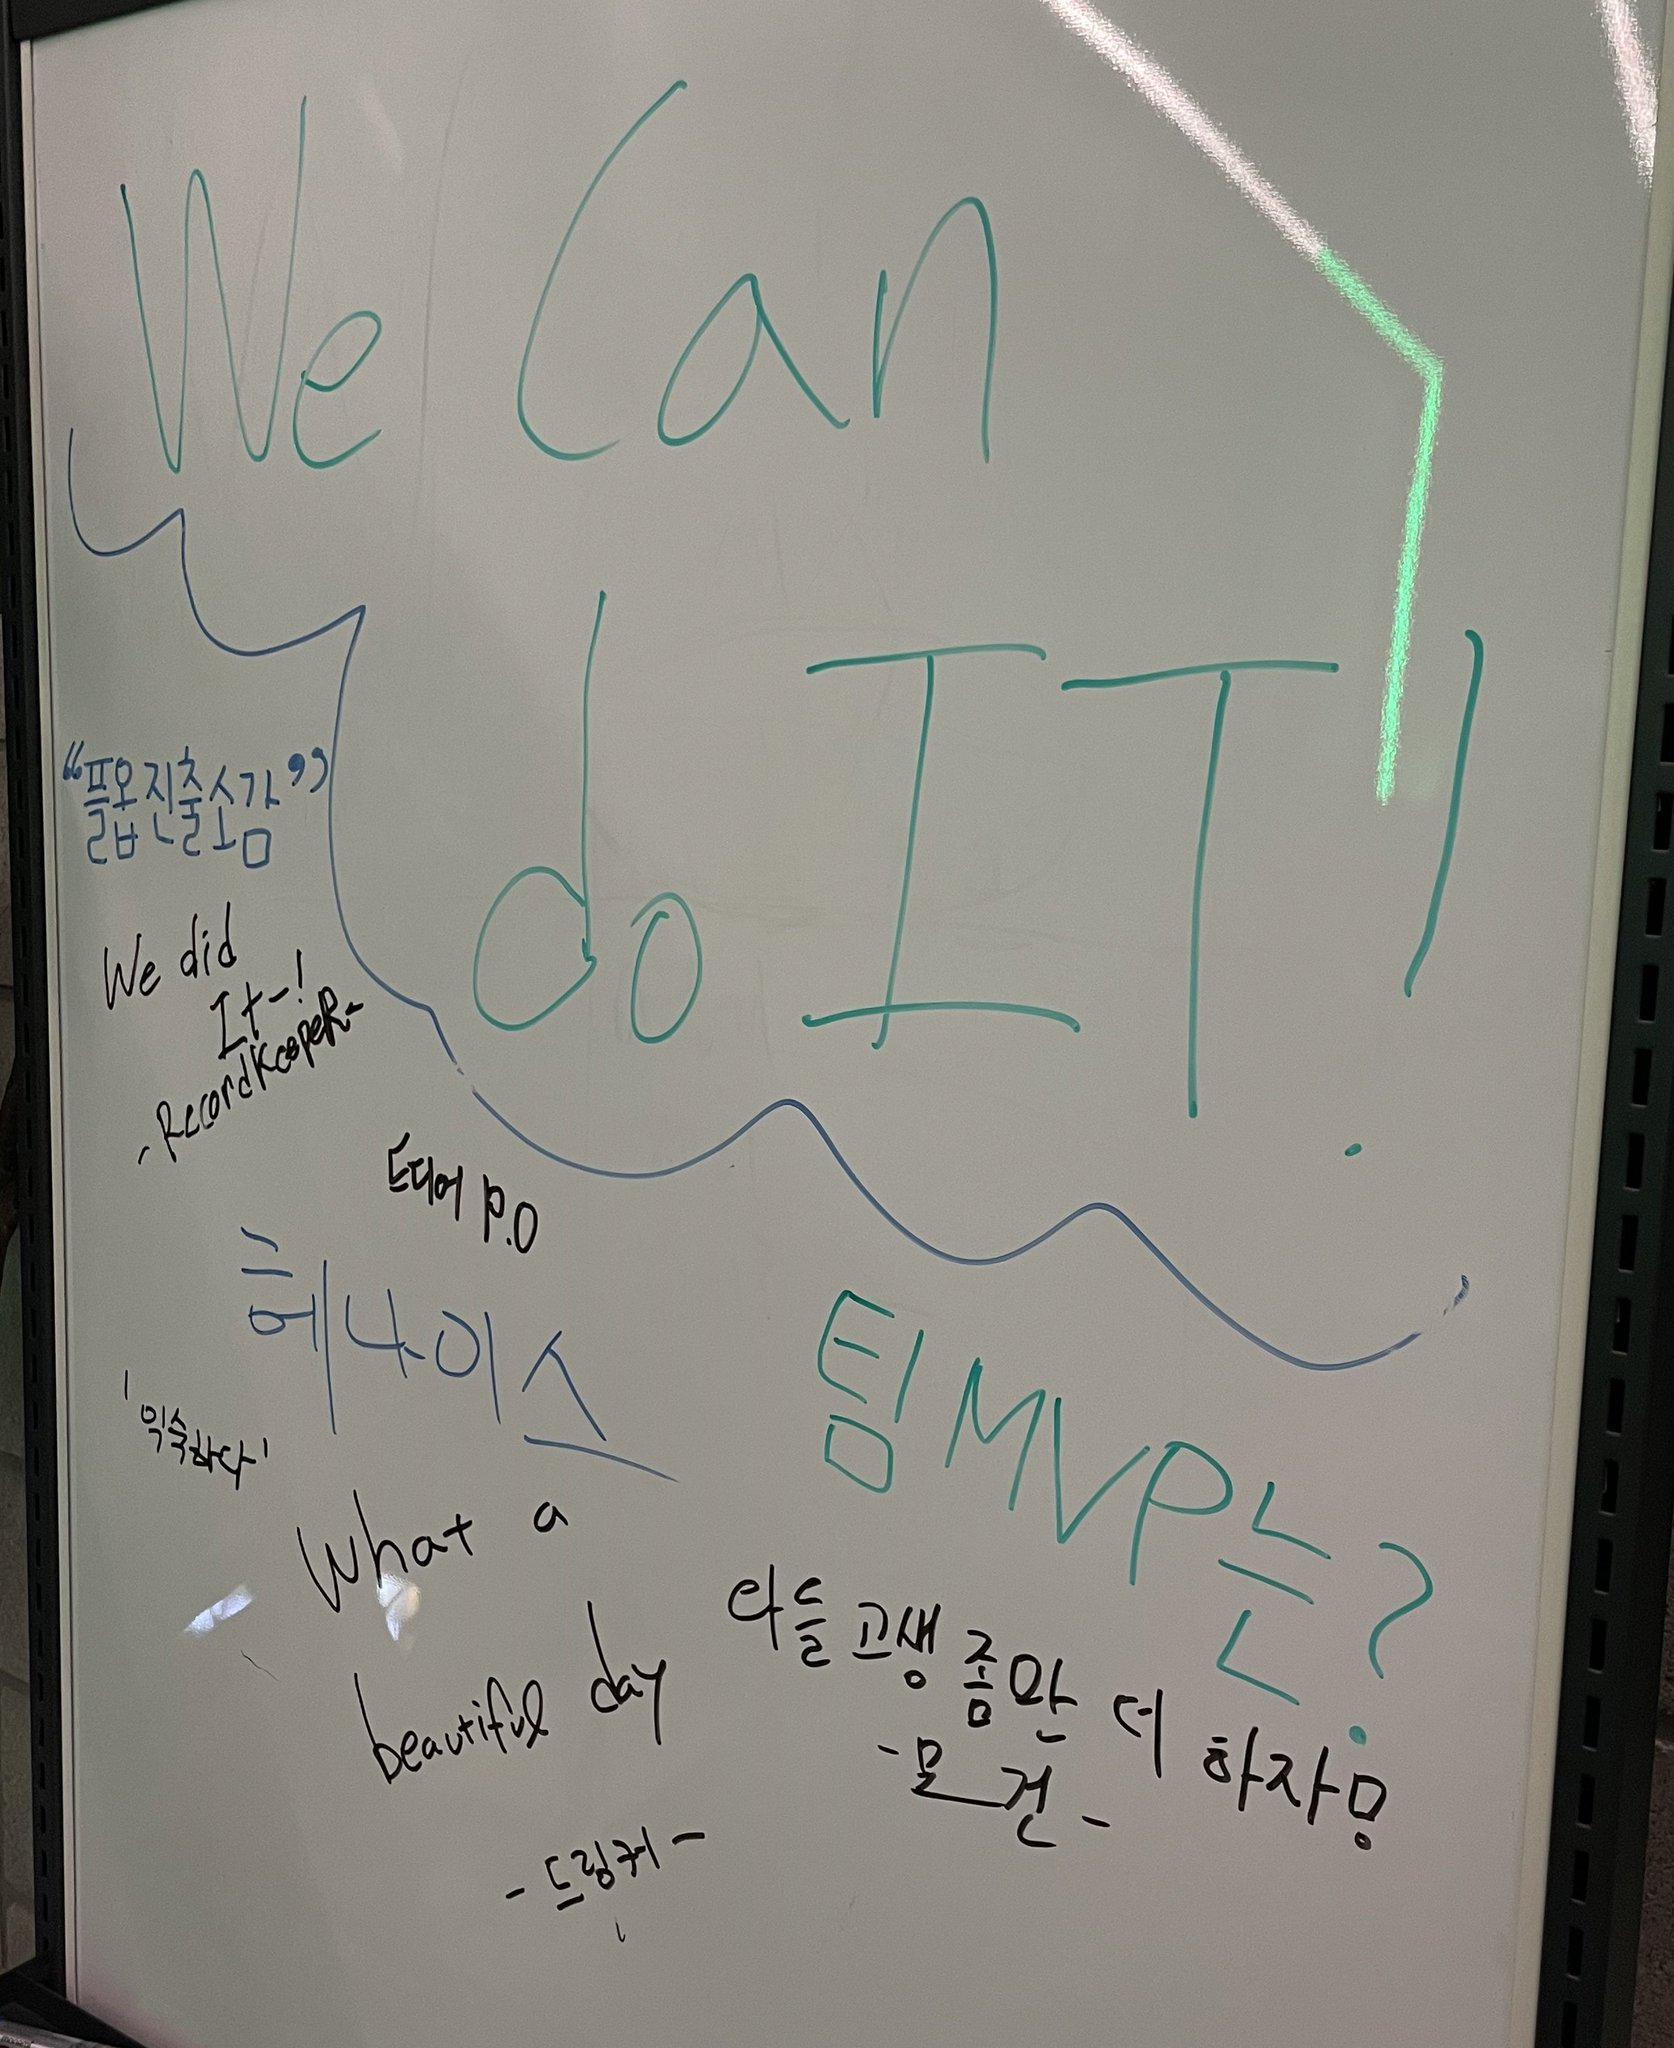 We Can
do IT!
“플옵진출소감”
We did
It-!
-RecordKeepeR-
드디어 P.O
헤나이스
'익숙하다'
What a
beautiful day
-드링커-
팀MVP는?
다들 고생 좀만 더 하자!
-물건-